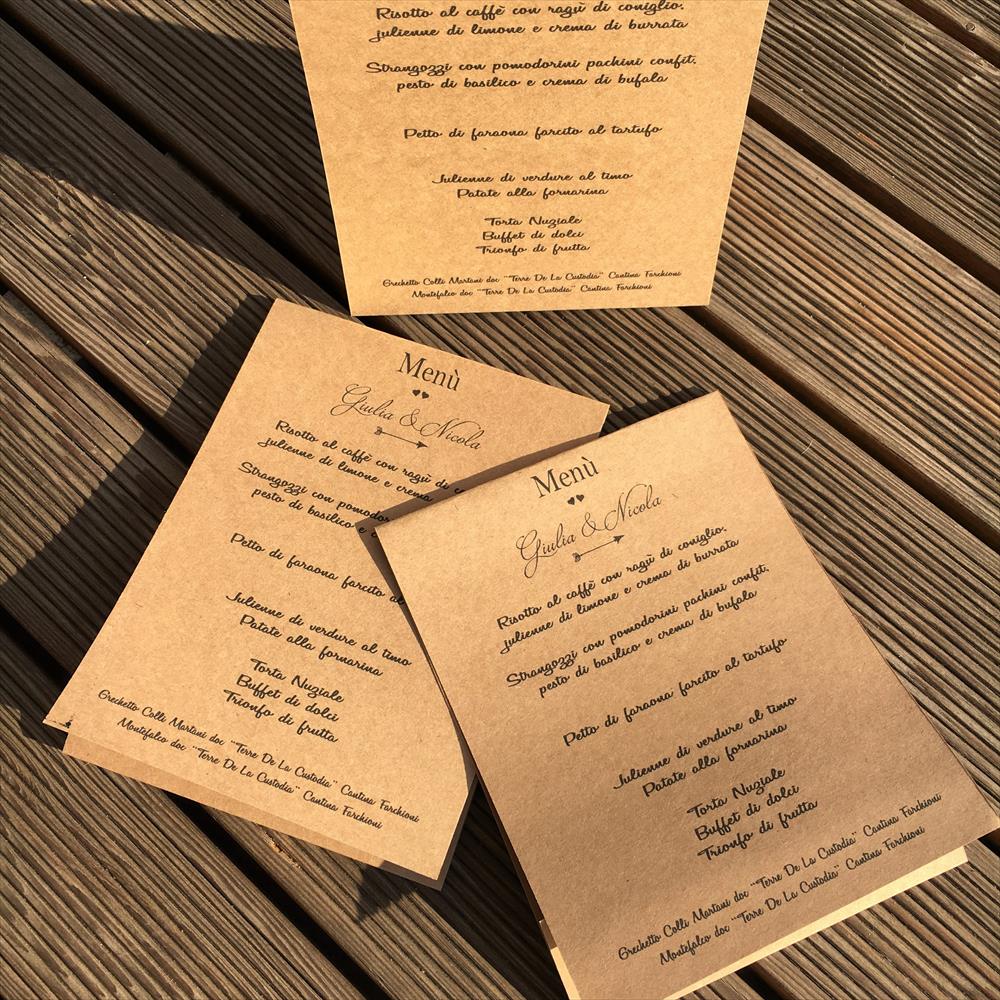 Risotto al caffè con ragù di coniglio,
julienne di limone e crema di burrata
Strangozzi con pomodorini pachini confit,
pesto di basilico e crema di bufala
Petto di faraona farcito al tartufo
Julienne di verdure al timo
Patate alla fornarina
Torta Nuziale
Buffet di dolci
Trionfo di frutta
Grechetto Colli Martani doc "Terre De La Custodia" Cantina Farchioni
Montefalco doc "Terre De La Custodia" Cantina Farchioni
Menù
Giulia & Nicola
Risotto al caffè con ragù di c
julienne di limone e crema
Strangozzi con pomodor
pesto di basilico e c
Petto di faraona farcito al
Julienne di verdure al timo
Patate alla fornarina
Torta Nuziale
Buffet di dolci
Trionfo di frutta
Grechetto Colli Martani doc "Terre De La Custodia" Cantina Farchioni
Montefalco doc "Terre De La Custodia" Cantina Farchioni
Menù
Giulia & Nicola
Risotto al caffè con ragù di coniglio,
julienne di limone e crema di burrata
Strangozzi con pomodorini pachini confit,
pesto di basilico e crema di bufala
Petto di faraona farcito al tartufo
Julienne di verdure al timo
Patate alla fornarina
Torta Nuziale
Buffet di dolci
Trionfo di frutta
Grechetto Colli Martani doc "Terre De La Custodia" Cantina Farchioni
Montefalco doc "Terre De La Custodia" Cantina Farchioni